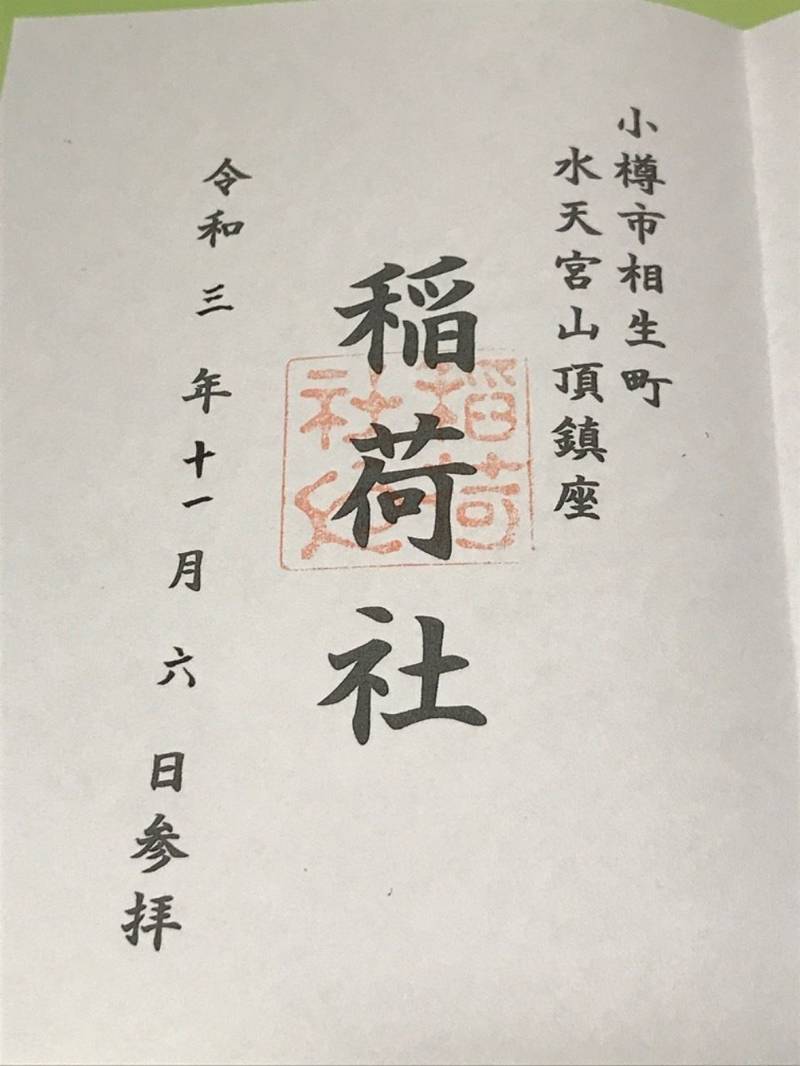 小樽市相生町
水天宮山頂鎮座
稲荷社
稲荷
社
令和三年十一月六日参拝